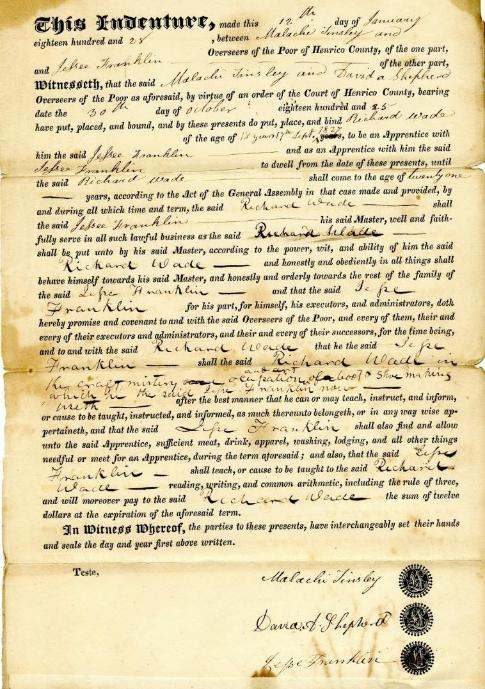 This Indenture, made this 12th day of January
eighteen hundred and 28, between Malachi Tinsley and
Overseers of the Poor of Henrico County, of the one part,
and Jesse Franklin of the other part,
Witnesseth, that the said Malachi Tinsley and David A Shepherd
Overseers of the Poor as aforesaid, by virtue of an order of the Court of Henrico County, bearing
date the 30th day of October eighteen hundred and 25
have put, placed, and bound, and by these presents do put, place, and bind Richard Wade
of the age of 18 years 17th Sept. 1827 years, to be an Apprentice with
him the said Jesse Franklin and as an Apprentice with him the said
Jesse Franklin to dwell from the date of these presents, until
the said Richard Wade shall come to the age of twenty one
years, according to the Act of the General Assembly in that case made and provided, by
and during all which time and term, the said Richard Wade shall
the said Jesse Franklin his said Master, well and faith-
fully serve in all such lawful business as the said Richard Wade
shall be put unto by his said Master, according to the power, wit, and ability of him the said
Richard Wade and honestly and obediently in all things shall
behave himself towards his said Master, and honestly and orderly towards the rest of the family of
the said Jesse Franklin and that the said Jesse
Franklin for his part, for himself, his executors, and administrators, doth
hereby promise and covenant to and with the said Overseers of the Poor, and every of them, their and
every of their executors and administrators, and their and every of their successors, for the time being,
and to and with the said Richard Wade that he the said Jesse
Franklin shall the said Richard Wade in
the craft mistery and occupation of a boot & Shoe making
which he the said Jesse Franklin now
useth after the best manner that he can or may teach, instruct, and inform,
or cause to be taught, instructed, and informed, as much thereunto belongeth, or in any way wise ap-
pertaineth, and that the said Jesse Franklin shall also find and allow
unto the said Apprentice, sufficient meat, drink, apparel, washing, lodging, and all other things
needful or meet for an Apprentice, during the term aforesaid; and also, that the said Jesse
Franklin shall teach, or cause to be taught to the said Richard
Wade reading, writing, and common arithmetic, including the rule of three,
and will moreover pay to the said Richard Wade the sum of twelve
dollars at the expiration of the aforesaid term.
In Witness Whereof, the parties to these presents, have interchangeably set their hands
and seals the day and year first above written.
Teste,
Malachi Tinsley
David A. Shepherd
Jesse Franklin